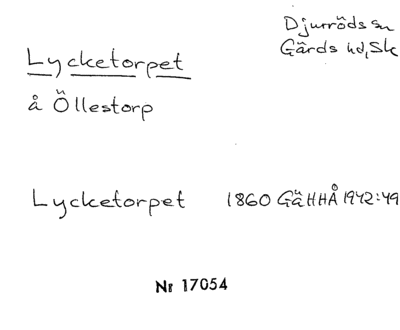 Djurröds sn
Gärds hd, Sk
Lycketorpet
å Öllestorp
Lycketorpet 1860 GäHHÅ 1942:49
Nr 17054